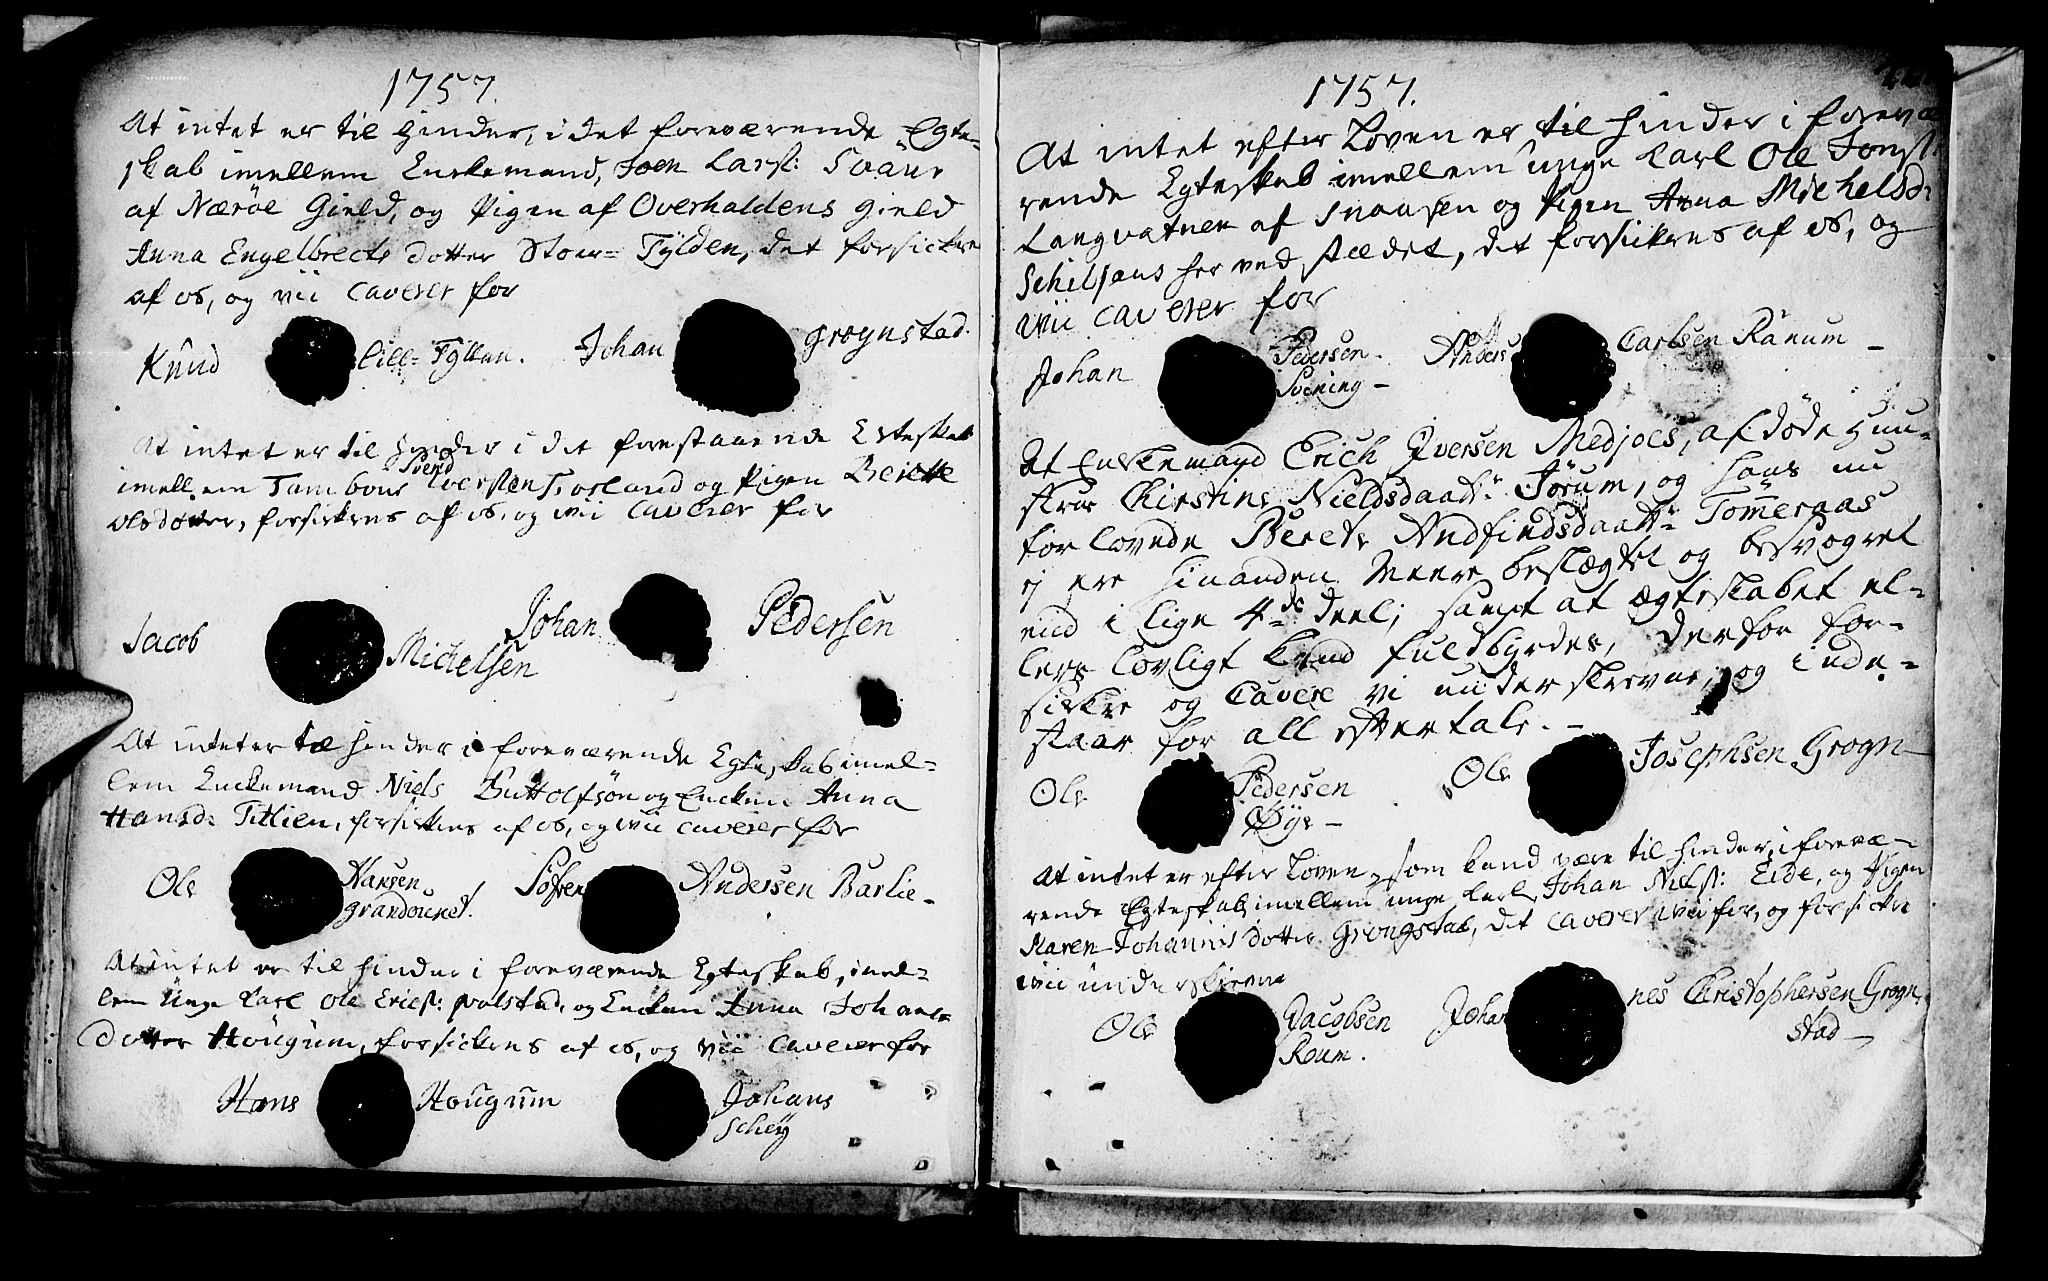 1757.
At intet er til Hinder, i det foreværende Egte-
skab imellem Enckemand, Joen Lars: Svaur
af Nærøe Gield, og Pigen af Overhaldens gield
Anna Engelbrects dotter Stoer-Tÿlden, det forsickre
af os, og vii caverer for
Knud Lill-Tÿllan. Johan Grognstad.
At intet er til Hinder i det forestaaende Egteskab
Svend
imellem Tambour Iversten Forland og Pigen Berette
olsdotter, forsickres af os, og vii caverer for
Jacob Michelsen Johan Pedersen
At intet er til Hinder i foreværende Egteskab imel-
lem Enckemand Niels Buttolfsøn og Encken Anna
Hansd: Tetlien, forsickres af os, og vii caverer for
Ole Hansen Søfren Andersen Barlie-
Grandounet.
At intet er til Hinder i foreværende Egteskab, imel-
lem Unge Karl Ole Erics: polstad, og Encken Anna Johans-
Dotter Hougum, forsickres af os, og vii caverer for
Hans Hougum Johans
Scheÿ
1757.
At intet efter Loven er til Hinder i forevæ-
rende Egteskab imellem unge Karl Ole Jons:
Langvatnen af Snaasen og Pigen Anna Michelsd:
Schilsaus her ved stædet, det forsickres af os, og
vii caverer for
Johan Pedersen Anders Carlsen Ranum -
Svening -
At Enckemand Erich Iversen Medjoes, afdøde Huu-
strue Chirstine Nieldsdaatt: Jørum, og hans nu
forlovede Berete Andfindsdaatt: Tom̄eraas
ej ere hinanden Meere beslægtet og besvogret
end i lige 4de deel; sampt at ægteskabet el-
lers lovligt kand fuldbyrdes, derfor for-
sickre og Cavere vi underskrevne, og inde-
staar for all eftertale. -
Ole Pedersen Ole Josephsen Grogn
Øÿe -
At intet er efter Loven, som kand være til hinder, i forevæ-
rende Egteskab imellem unge Karl Johan Niels: Eide, og Pigen
Karen Johannis dotter Grongstad, det caverer vii for, og forsickre
vii underskrevne
Ole Jacobsen Johannes Christophersen Grogn
Roum. stad -